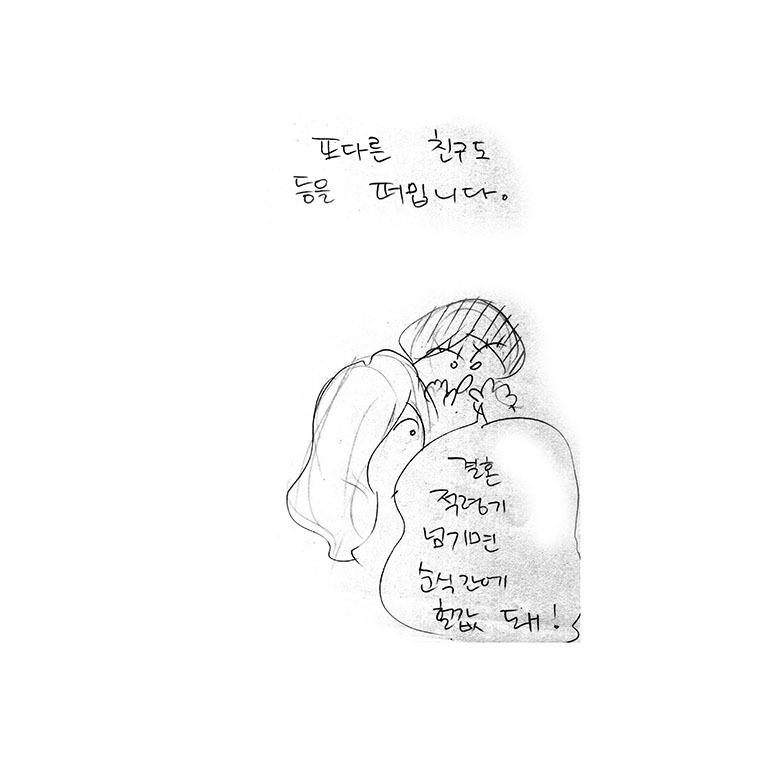 또다른 친구도
등을 떠밉니다.
결혼
적령기
넘기면
순식간에
헐값 돼!